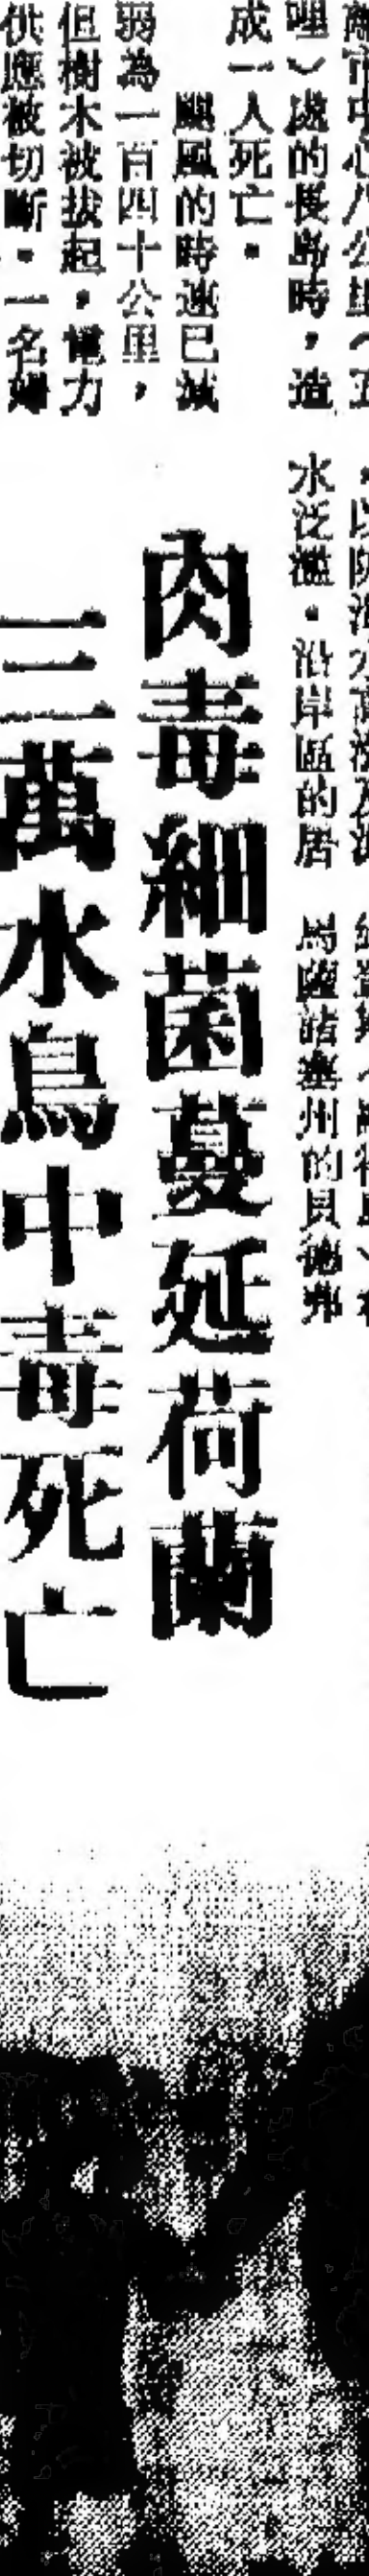 離市中心八公里（五
哩）處的長島時，造
成一人死亡。
颶風的時速已減
弱為一百四十公里，
但樹木被拔起，電力
供應被切斷。一名婦
，以防海水高漲及洪
水泛濫。沿岸區的居
馬薩諸塞州的貝德弗
肉毒細菌蔓延荷蘭
三萬水鳥中毒死亡